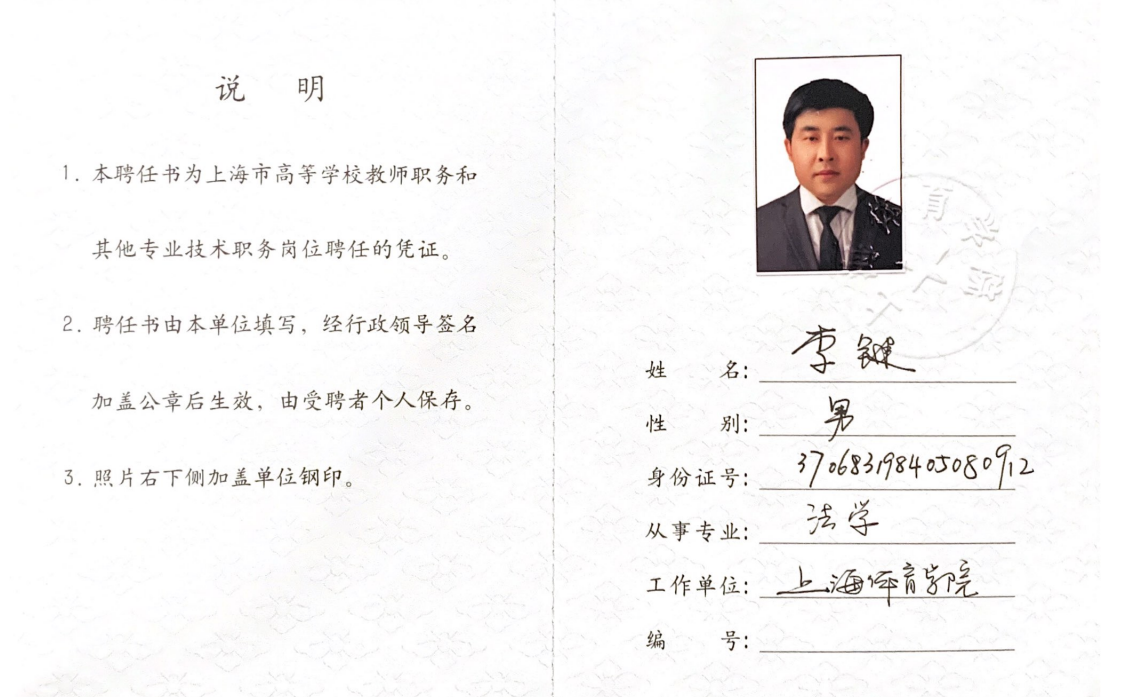 说 明
1. 本聘任书为上海市高等学校教师职务和
其他专业技术职务岗位聘任的凭证。
2. 聘任书由本单位填写，经行政领导签名
加盖公章后生效，由受聘者个人保存。
3. 照片右下侧加盖单位钢印。
姓 名：李键
性 别：男
身份证号：370683198405080912
从事专业：法学
工作单位：上海体育学院
编 号：